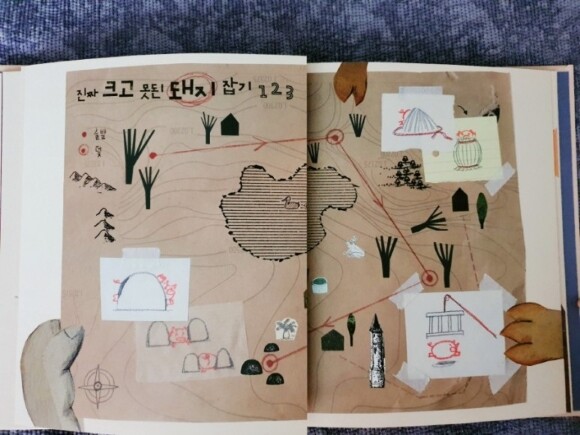 진짜 크고 못된 돼지 잡기 123
출발
덫